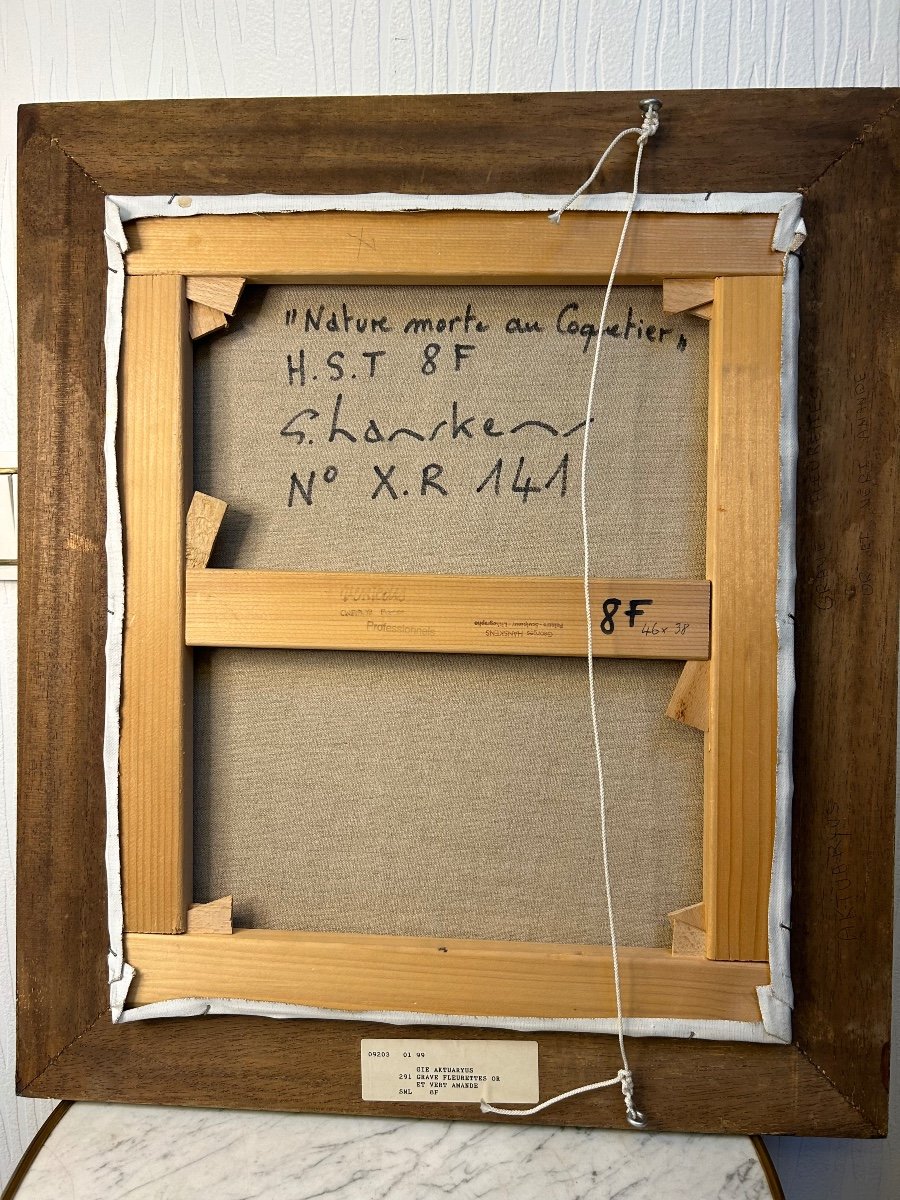 "Nature morte au Coquetier"
H.S.T 8F
G. Hanskens
N° X.R 141
Professionnels
Georges HANSKENS
Peintre - Sculpteur - Lithographe
8F 46x38
GRAVE FLEURETTE
OR ET VERT AMANDE
AKTUARYUS
09203 01 99
GIE AKTUARYUS
291 GRAVE FLEURETTES OR
ET VERT AMANDE
SML 8F